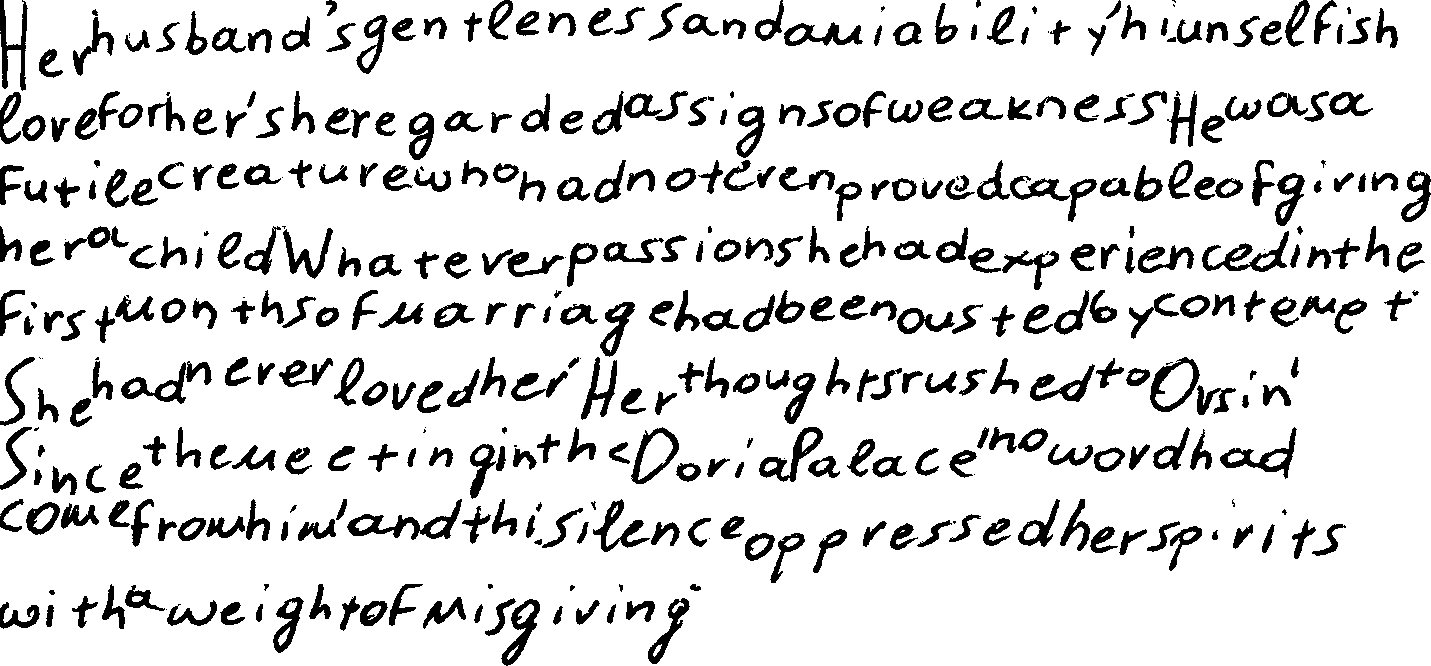 Her husband's gentleness and amiability, hi unselfish
love for her, she regarded as signs of weakness. He was a
futile creature who had not even proved capable of giving
her a child. Whatever passion she had experienced in the
first months of marriage had been ousted by contempt.
She had never loved her. Her thoughts rushed to Orsin'
Since the meeting in the Doria Palace, no word had
come from him, and thi silence oppressed her spirits
with a weight of misgiving.